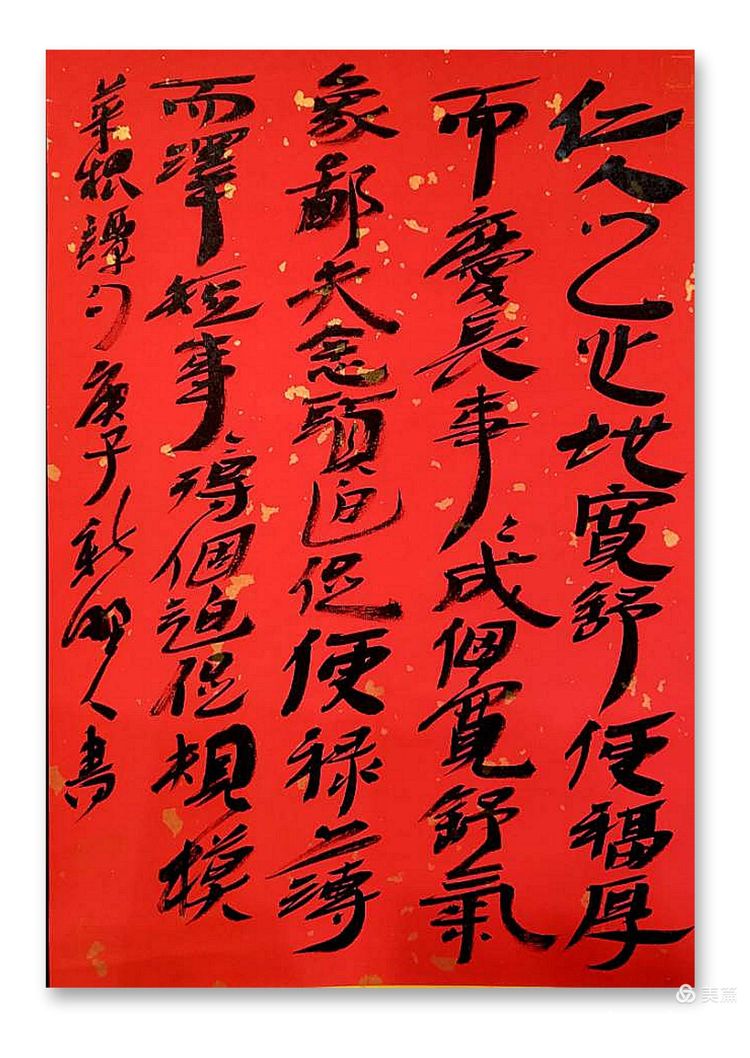 仁人心地寬舒便福厚
而慶長事〻成個寬舒氣
象鄙夫念頭迫促便祿薄
而澤短事〻得個迫促規模
菜根譚句庚子新野人書
美篇